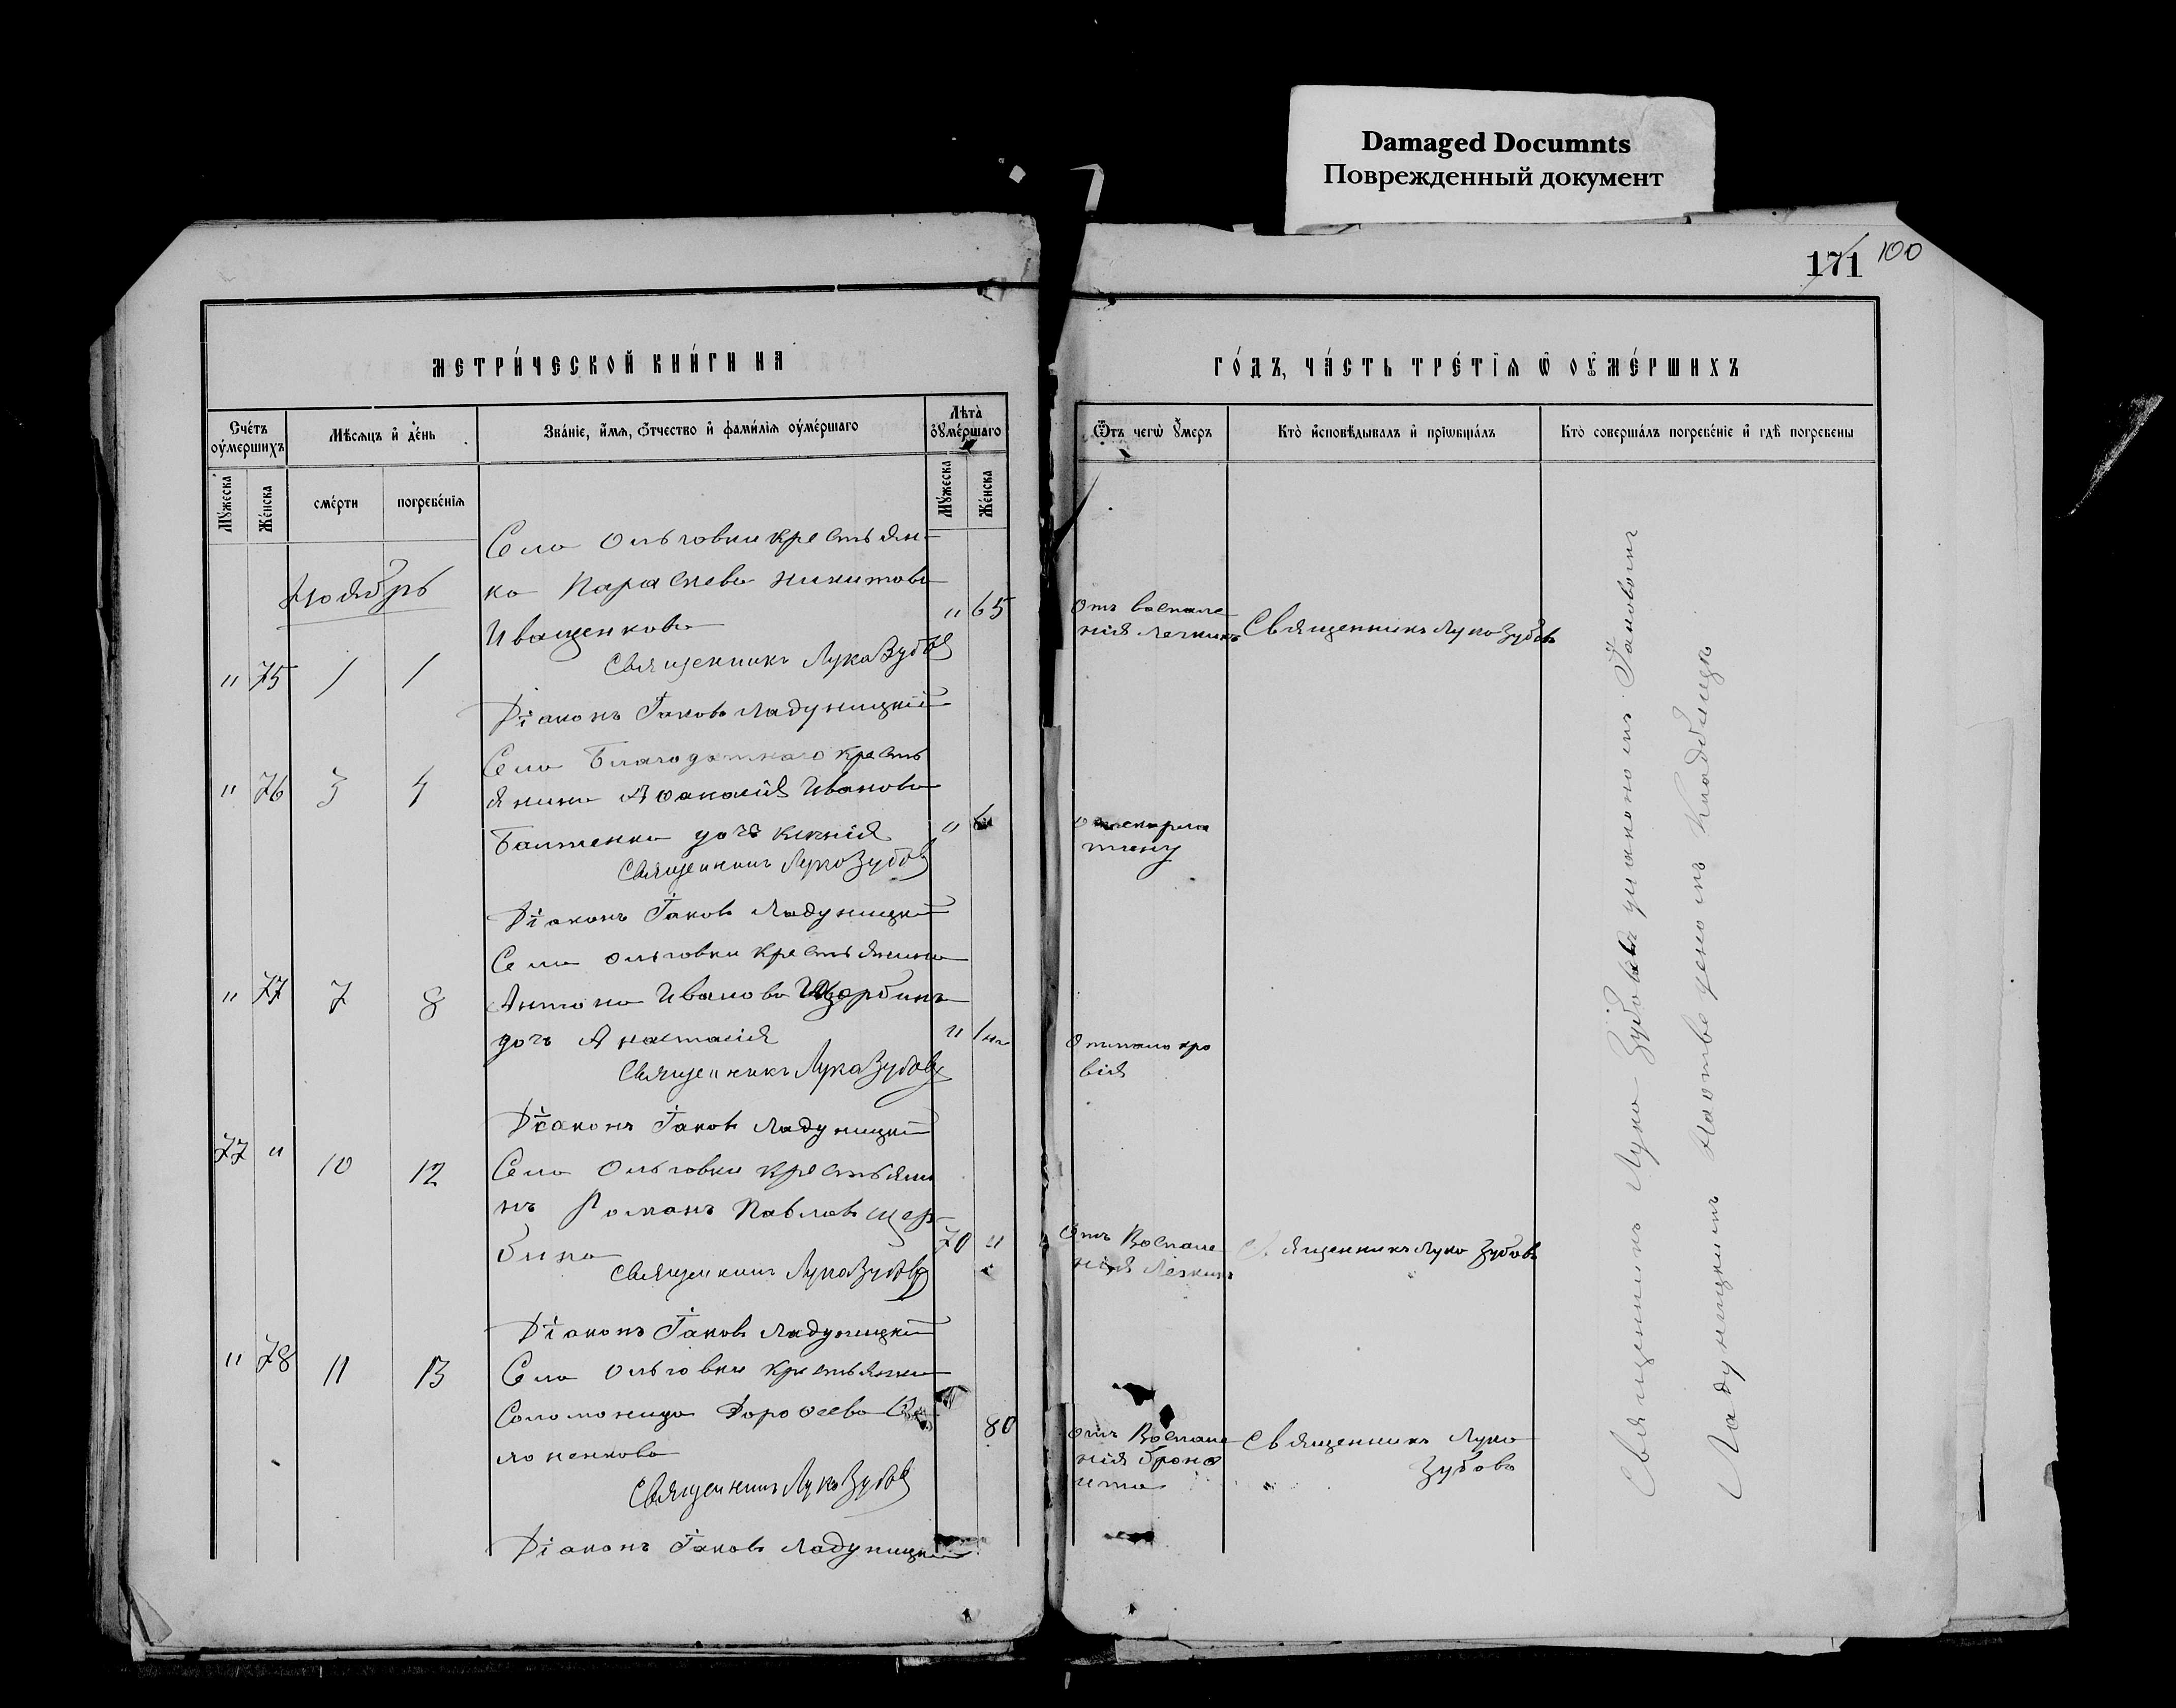 Damaged Documnts
Поврежденный документ
171 100
МЕТРИ́ЧЕСКОЙ КНИ́ГИ НА
ГО́ДЪ, ЧА́СТЬ ТРЕ́ТЇѦ Ѽ ОУ҆МЕ́РШИХЪ
Сче́тъ оу҆мершихъ
Мѣсѧцъ и҆ де́нь
Зва́нїе, и҆́мѧ, ѻ҆́тчество и҆ фами́лїѧ оу҆ме́ршаго
Лѣта̀ оу҆ме́ршаго
Ѿ чегѡ̀ оу҆́меръ
Кто̀ и҆сповѣ́дывалъ и҆ прїѡбща́лъ
Кто̀ соверша́лъ погребе́нїе и҆ гдѣ̀ погребены
Мꙋ́жеска
Же́нска
сме́рти
погребе́нїѧ
Мꙋ́жеска
Же́нска
Ноябрь
Села Ольговки крестьян-
ка Параскева Никитова
Иващенкова
Священникъ Лука Зубовъ
Діаконъ Іаковъ Ладуницкій
" 75 1 1
" 65
Отъ воспале
нія легкихъ
Священникъ Лука Зубовъ
" 76 3 4
Села Благодатнаго кресть
янина Аѳанасія Иванова
дочь Ксенія
Священникъ Лука Зубовъ
Діаконъ Іаковъ Ладуницкій
"
Отъ скарла
тины
" 77 7 8
Села Ольговки крестьянина
Антона Иванова Щербины
дочь Анастасія
Священникъ Лука Зубовъ
Діаконъ Іаковъ Ладуницкій
"
вія
77 " 10 12
Села Ольговки крестьяни
нъ Романъ Павловъ Щер-
бина
Священникъ Лука Зубовъ
Діаконъ Іаковъ Ладуницкій
70 "
Отъ Воспале
нія Легкихъ
Священникъ Лука Зубовъ
" 78 11 13
Села Ольговки крестьянка
Соломонида Дороѳеева
ноненкова
Священникъ Лука Зубовъ
Діаконъ Іаковъ Ладуницкій
80
Отъ Воспале
нія бронх
ита
Священникъ Лука
Зубовъ
Священникъ Лука Зубовъ съ діакономъ Іаковомъ
Ладуницкимъ кладбищѣ